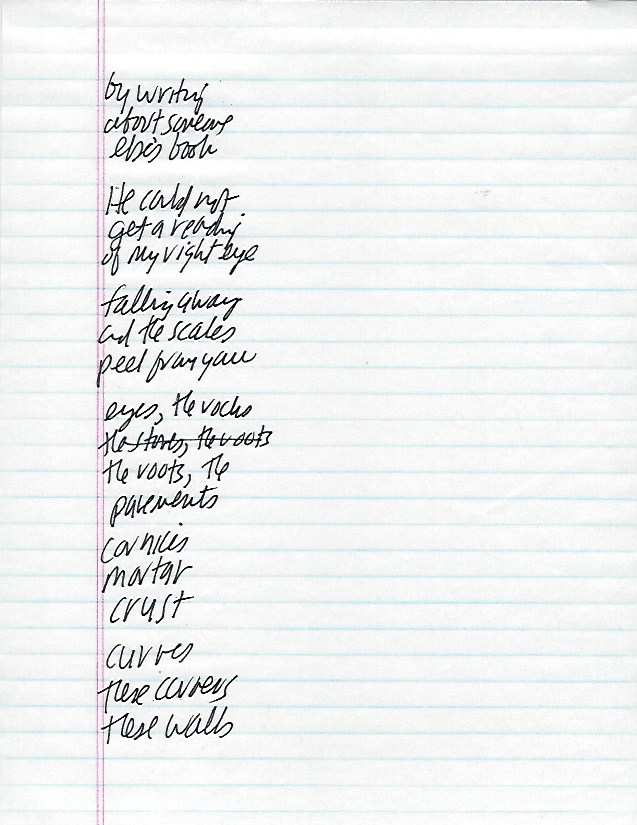 by writing
about someone
else's book
He could not
get a reading
of my right eye
falling away
and the scales
peel from your
eyes, the rocks
the stones, the roots
the roots, the
pavements
cornices
mortar
crust
curves
these corners
these walls